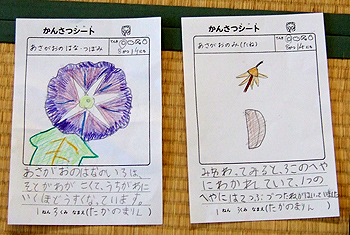 かんさつシート
あさがおのはな・つぼみ
てんき
8がつ14にち
あさがおのはなのいろは、
そとがわが こくて、うちがわに
いくほどうすくなっています。
1ねん 3くみ なまえ(たかのまりん)
かんさつシート
あさがおのみ(たね)
てんき
8がつ14にち
みをわってみると、3このへや
にわかれていて、1つの
へやには2つぶづつたねがはいっていました
1ねん 3くみ なまえ(たかのまりん)